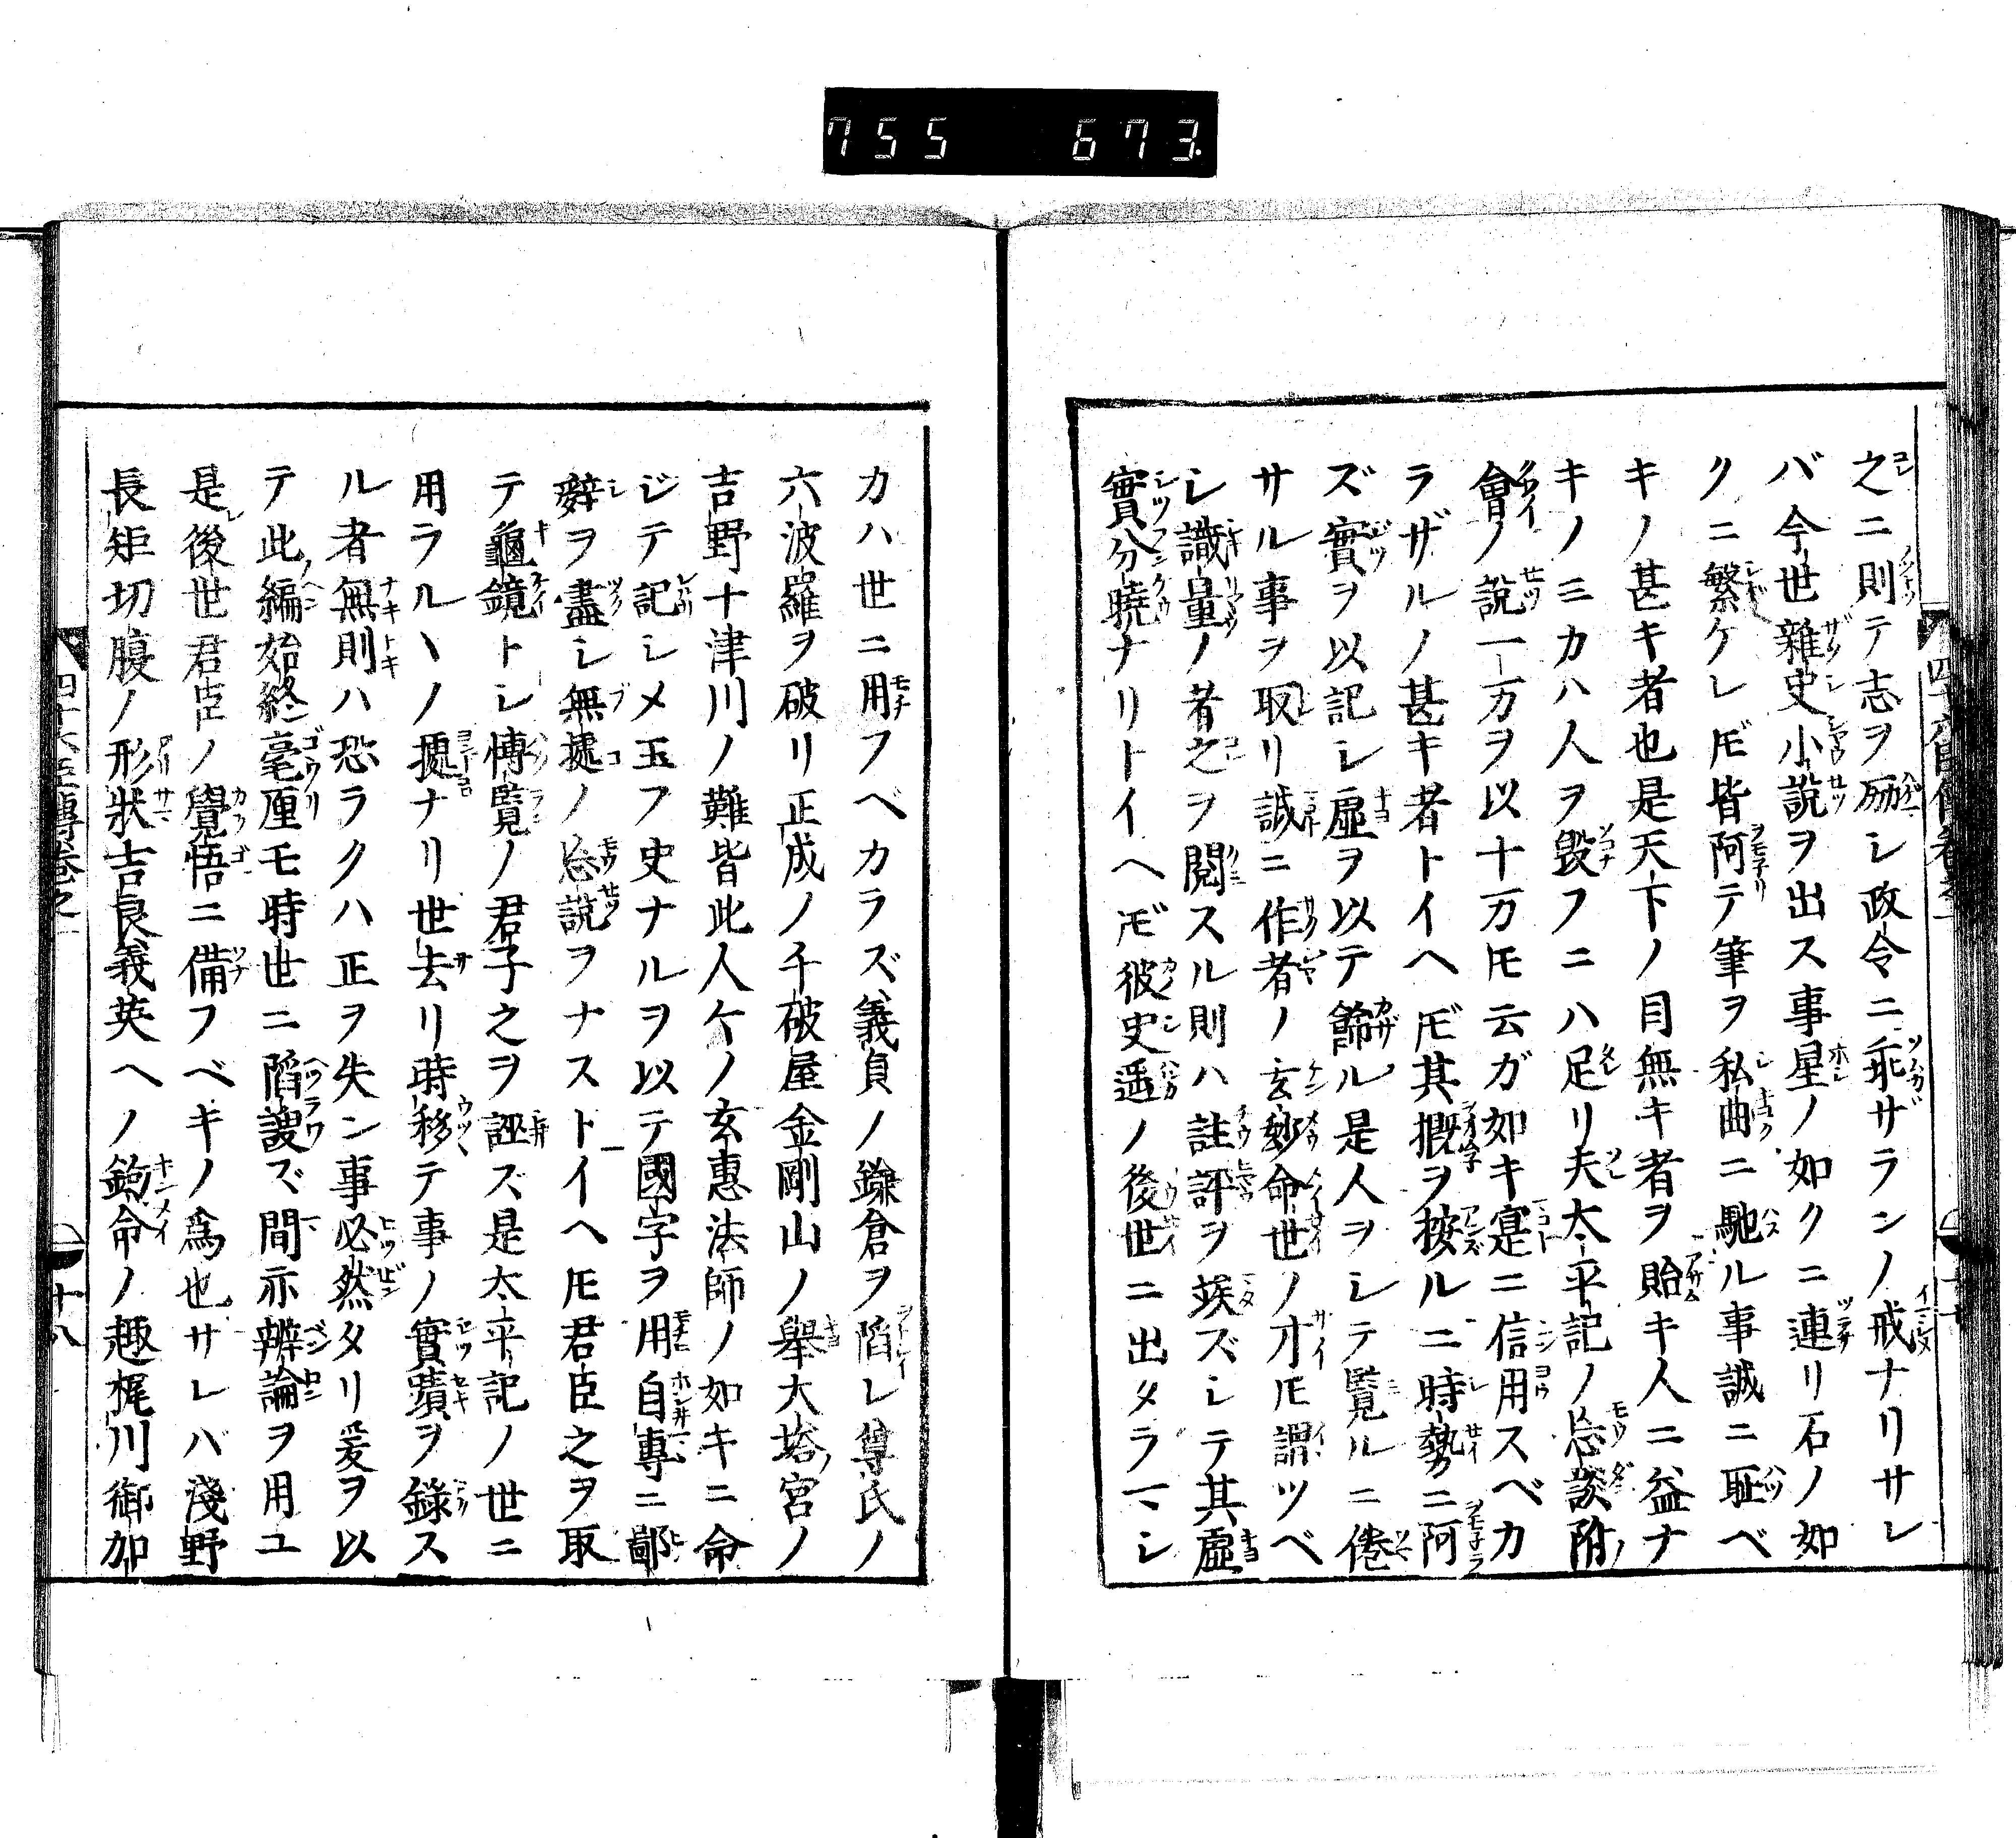 755 673.
之ニ則テ志ヲ励シ政令ニ乖ザランノ戒ナリサレ
バ今世雜史小說ヲ出ス事星ノ如クニ連リ石ノ如
クニ繁ケレ𪜈皆阿テ筆ヲ私曲ニ馳ル事誠ニ耻ベ
キノ甚キ者也是天下ノ目無キ者ヲ貽キ人ニ益ナ
キノミカハ人ヲ毀フニハ足リ夫太平記ノ忘談附
會ノ說一万ヲ以十万𪜈云ガ如キ寔ニ信用スベカ
ラザルノ甚キ者トイヘ𪜈其概ヲ按ルニ時勢ニ阿
ズ實ヲ以記シ虛ヲ以テ飾ル是人ヲシテ覽ルニ倦
サル事ヲ取リ誠ニ作者ノ玄妙命世ノ才𪜈謂ツベ
シ識量ノ者之ヲ閲スル則ハ註評ヲ竢ズシテ其虛
實分曉ナリトイヘ𪜈彼史遥ノ後世ニ出タラマシ
カハ世ニ用フベカラズ義貞ノ鎌倉ヲ陷レ尊氏ノ
六波羅ヲ破リ正成ノ千破屋金剛山ノ舉大塔宮ノ
吉野十津川ノ難皆此人々ノ玄惠法師ノ如キニ命
ジテ記シメ玉フ史ナルヲ以テ國字ヲ用自專ニ鄙
辭ヲ盡シ無據ノ忘說ヲナストイヘ𪜈君臣之ヲ取
テ龜鏡トシ博覽ノ君子之ヲ誣ズ是太平記ノ世ニ
用ラルヽノ據ナリ世去リ時移テ事ノ實蹟ヲ錄ス
ル者無則ハ恐ラクハ正ヲ失ン事必然タリ爰ヲ以
テ此編始終毫厘モ時世ニ陷謏ズ間亦辨論ヲ用ユ
是後世君臣ノ覺悟ニ備フベキノ爲也サレバ淺野
長矩切腹ノ形狀吉良義英ヘノ鈞命ノ趣梶川御加
十八